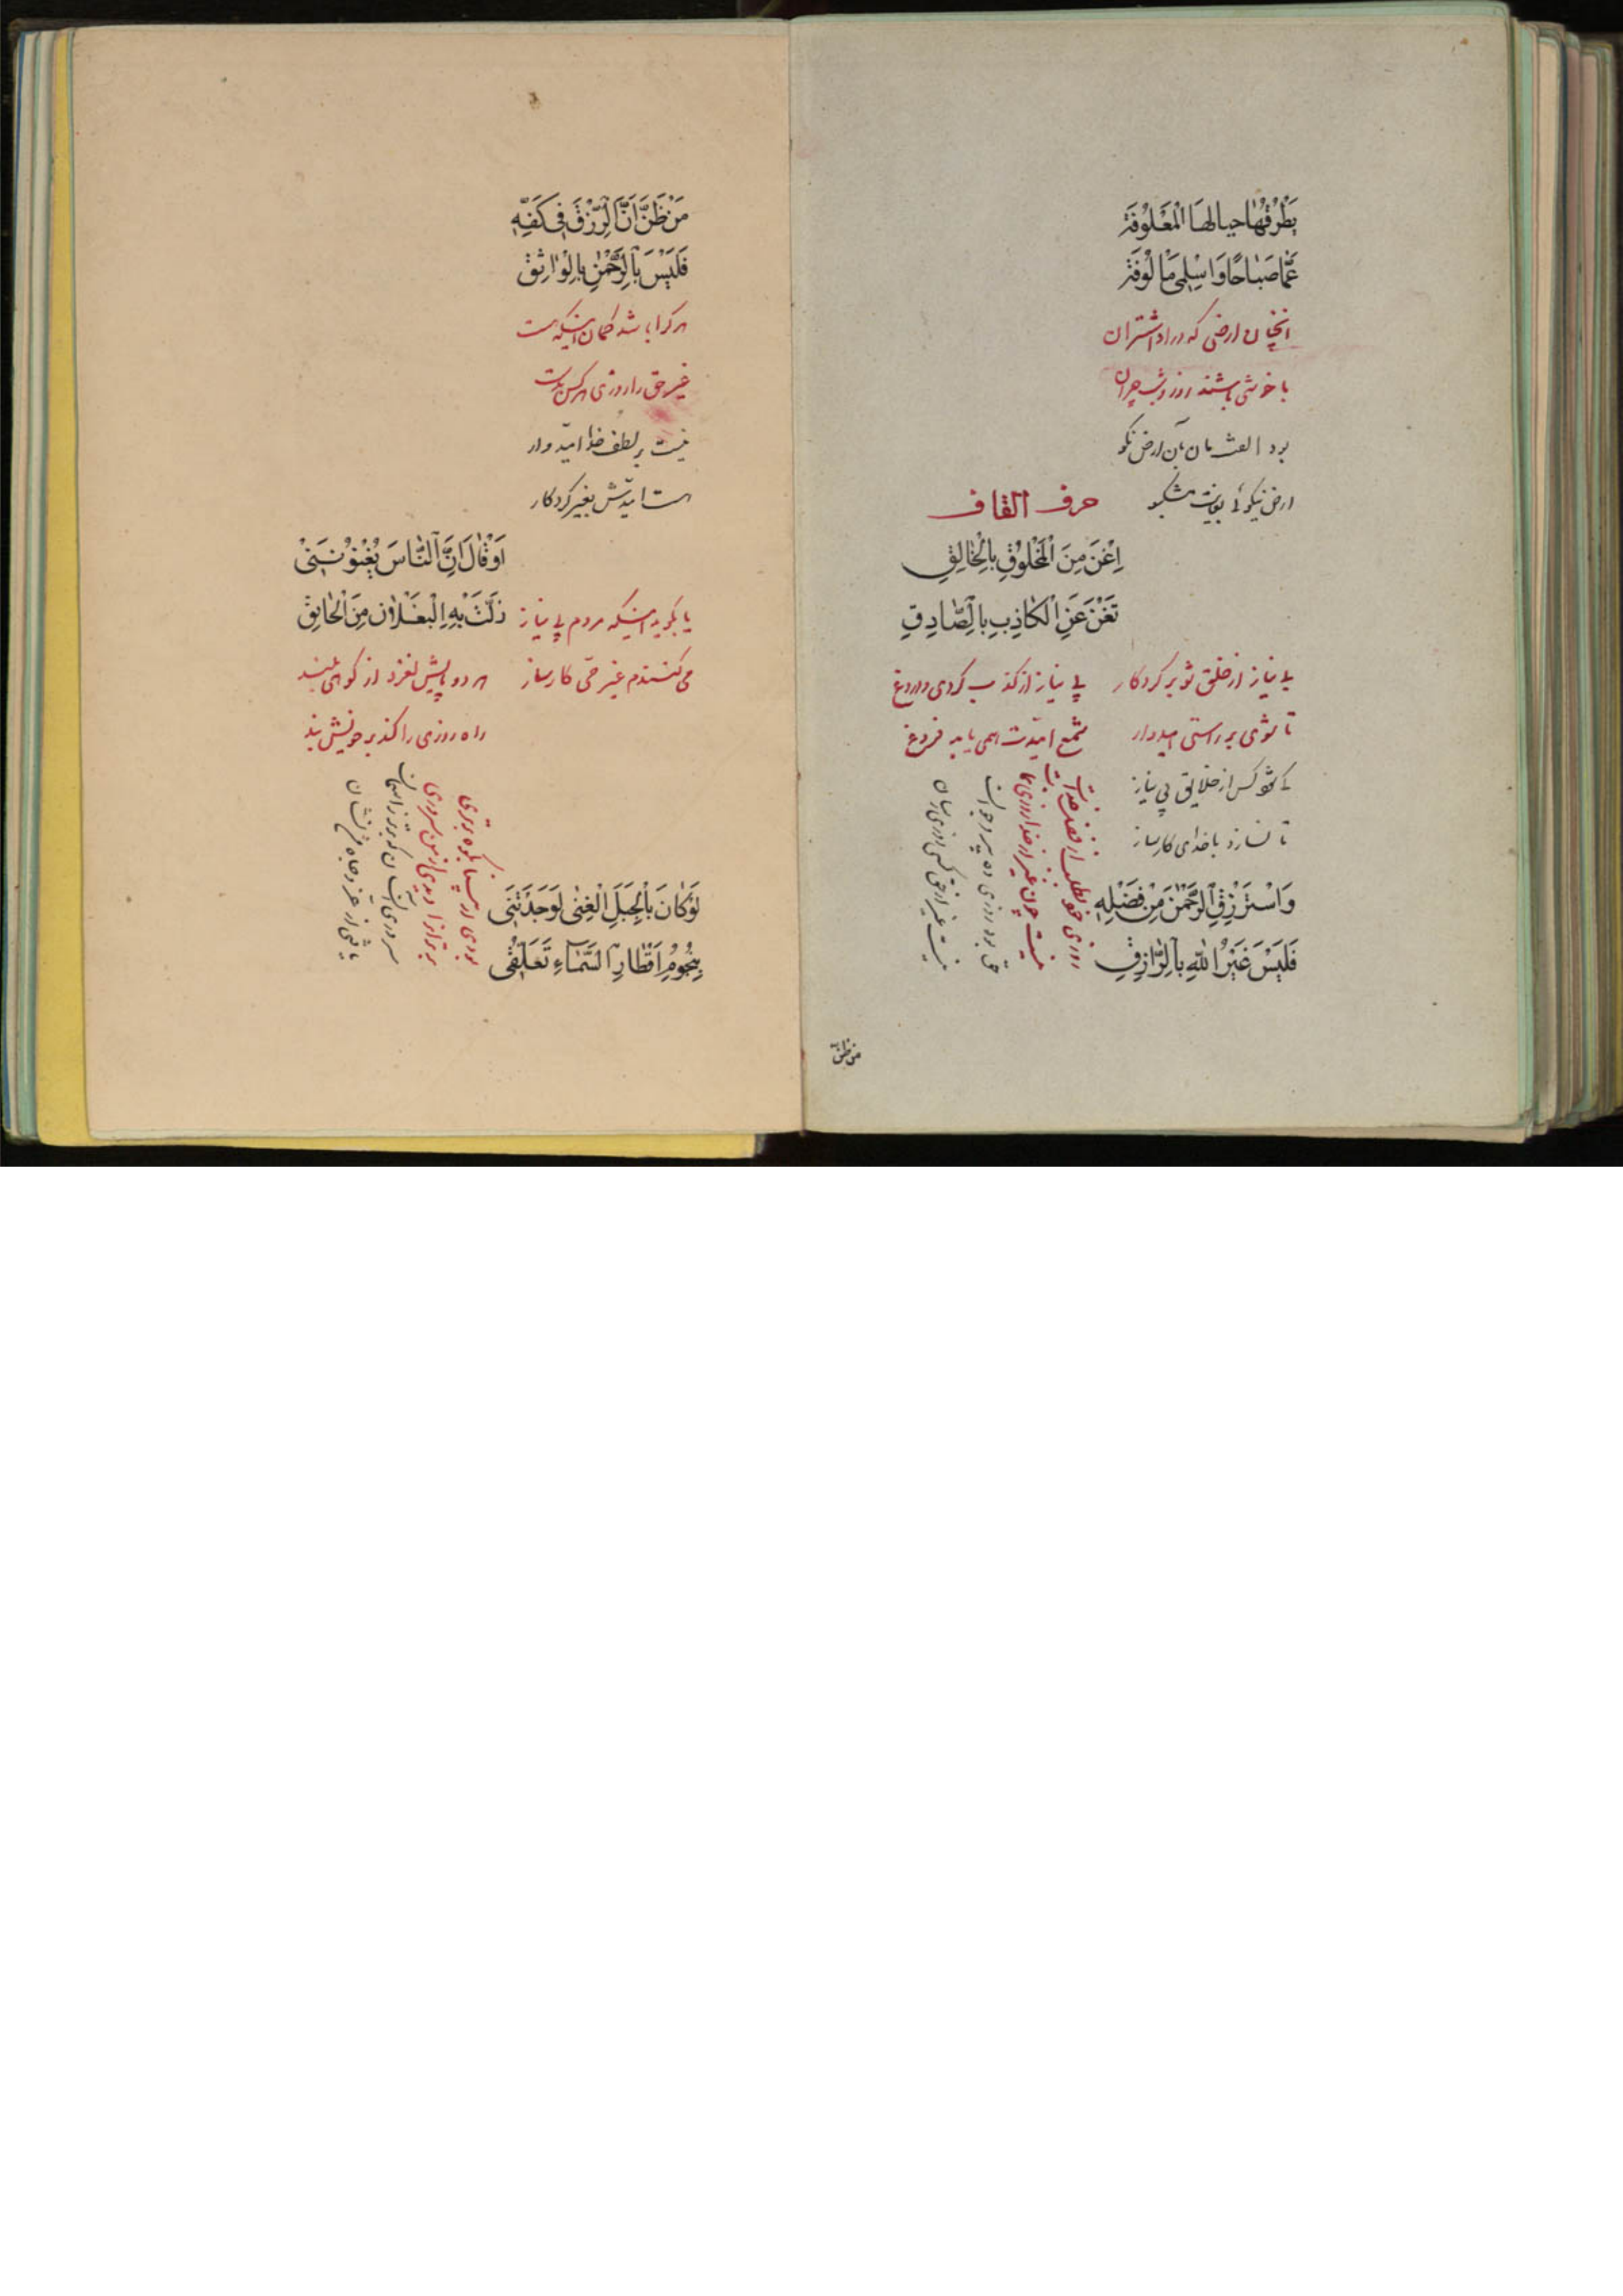 يَطْرُقُهَا حيالهَا الْمَعْلُوفَة
عِمَّا صَبَاحًا وَاسْلِمِى مَالُوفَة
انچنان ارضی که در او اشتران
با خوشی باشند روز و شب چران
بود العشان بآن ارض نکو
ارض نیکوئی
حرف القاف
اِغْنَ مِنَ الْمَخْلُوْقِ بِالْخَالِقِ
تَغْنَ عَنِ الْكَاذِبِ بِالصَّادِقِ
بی نیاز از خلق شو بر کردکار
تا شوی بر راستی امیدوار
بی نیاز از کذب کردی و دروغ
شمع امیدت همی یابد فروغ
کس از خلایق بی نیاز
تا نسازد با خدای کارساز
وَاسْتَرْزِقِ الرَّحْمٰنَ مِنْ فَضْلِهِ
فَلَيْسَ غَيْرُ اللهِ بِالرَّازِقِ
روزی خود طلب از فضل خدا
نیست چون غیر از خدا روزی
حق بود روزی ده پیر و جوان
نیست غیر از حق کسی روزی رسان
من ظنّ
مَنْ ظَنَّ اَنَّ الرِّزْقَ فِى كَفِّهِ
فَلَيْسَ بِالرَّحْمٰنِ بِالْوَاثِقِ
هر کرا باشد کمان اینکه هست
غیر حق را روزی هر کس بدست
نیست بر لطف خدا امیّدوار
هست امیّدش بغیر کردکار
اَوْ قَالَ اَنَّ النَّاسَ يُغْنُوْنَنِىْ
زَلَّتْ بِهِ الْبَغْلَانِ مِنَ الْحَالِقِ
یا بکوید اینکه مردم بی نیاز
می کنندم غیر حق کارساز
هر دو پایش لغزد از کوه بلند
راه روزی را کند بر خویش بند
لَوْ كَانَ بِالْجَبَلِ الْغِنٰى لَوَجَدْتَنِى
بِنُجُوْمِ اَقْطَارِ السَّمَاءِ تَعَلُّقِى
بودی ار بکوه برتری
برتر از او دیدی از من سروری
سروری آنسان که بر آسمان
یافتی از عزّ و جاه من نشان